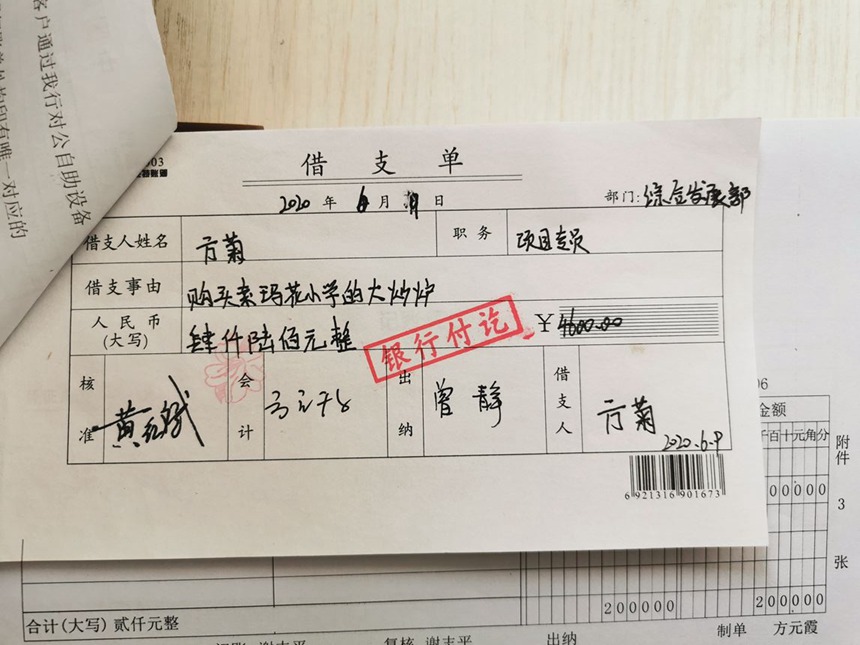 客户通过我行对公自助设备
有唯一对应的
借支单
2020年6月9日
部门:综合发展部
借支人姓名 亓菊 职务 项目专员
借支事由 购买素玛花小学的大炒炉
人民币(大写) 肆仟陆佰元整 ¥4600.00
银行付讫
核准 会计 出纳 曾静 借支人 亓菊
2020.6.9
6 921316 901673
金额
千百十元角分
附件3张
00000
合计(大写) 贰仟元整 200000 200000
复核 谢丰平 出纳 制单 方元霞